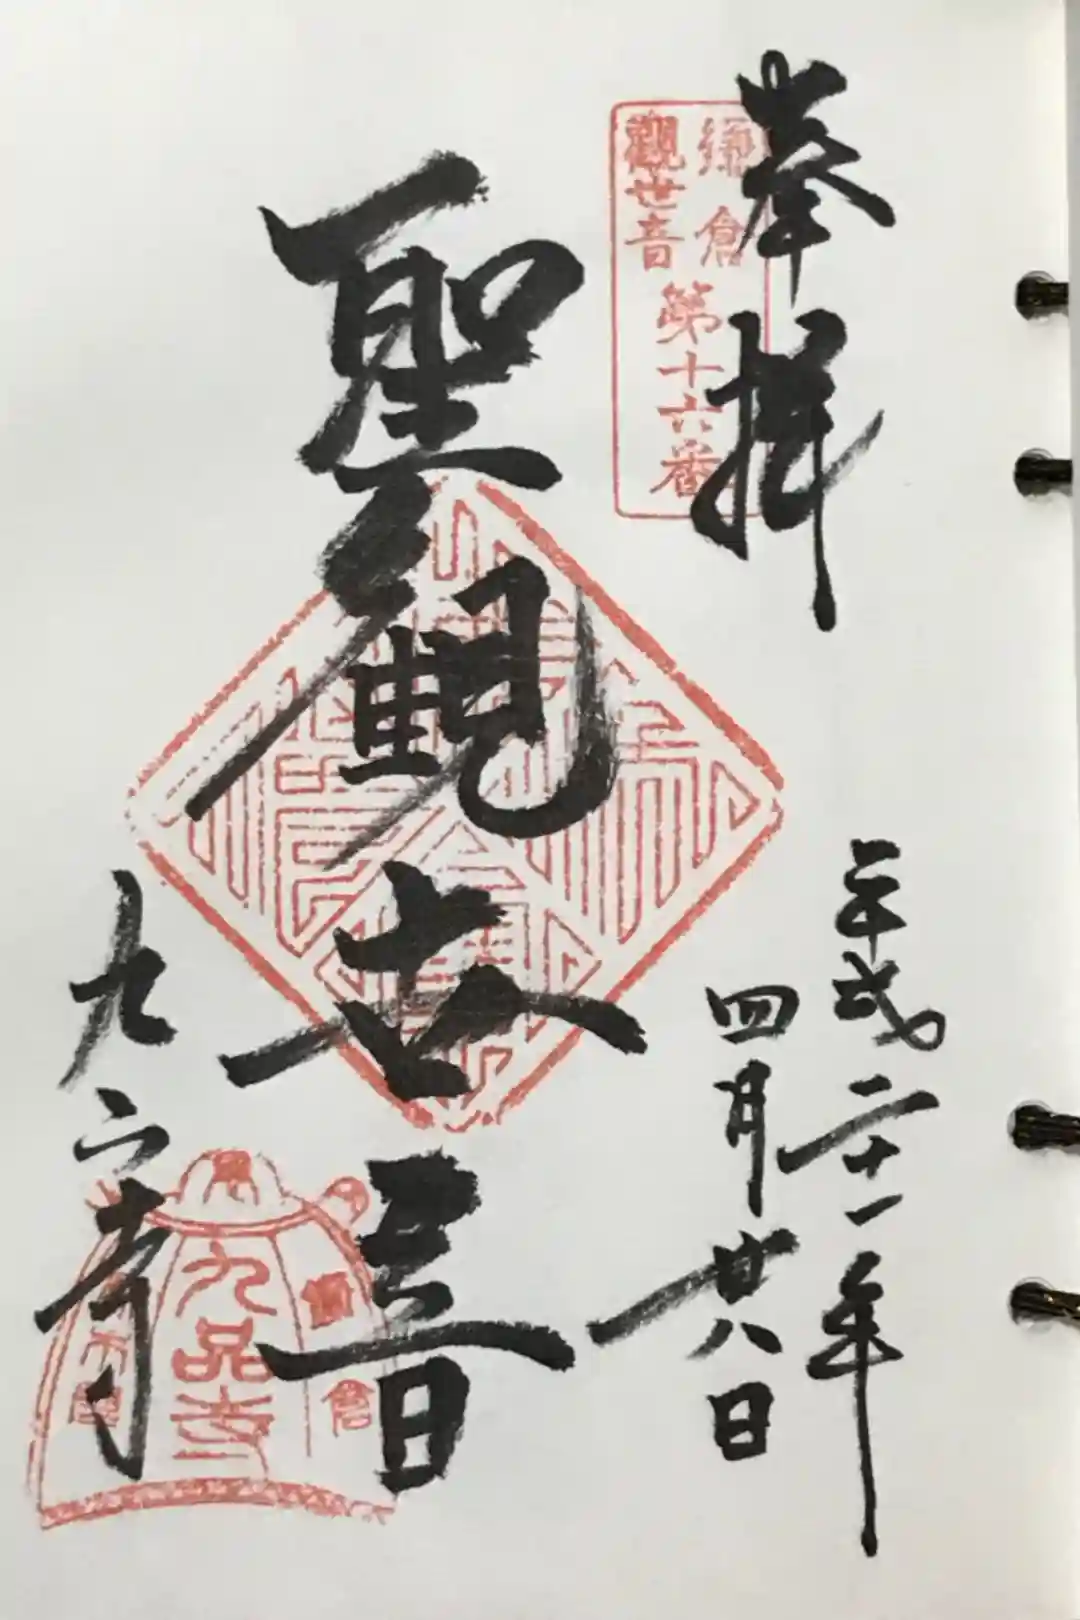 奉拝
鎌倉
觀世音
第十六番
平成二十一年
四月廿八日
聖観世音
九品寺
九品寺